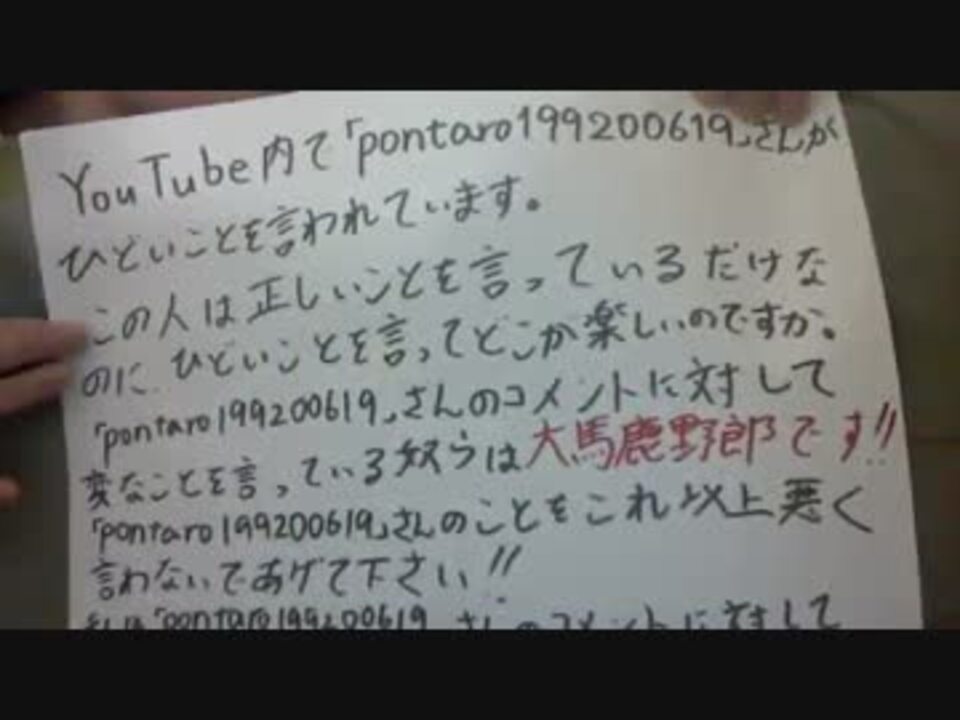 YouTube内で「pontaro199200619」さんが
ひどいことを言われています。
この人は正しいことを言っているだけな
のに、ひどいことを言ってどこが楽しいのですか。
「pontaro199200619」さんのコメントに対して
変なことを言っている奴らは大馬鹿野郎です!!
「pontaro199200619」さんのことをこれ以上悪く
言わないであげて下さい!!
私は「pontaro199200619」さんのコメントに対して